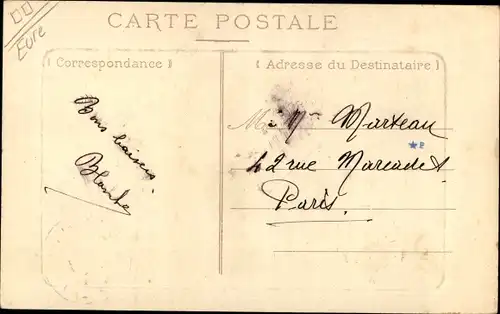 Eure
CARTE POSTALE
( Correspondance )
( Adresse du Destinataire )
Bons baisers.
Blanche
M Marteau
42 rue Marcadet
Paris.